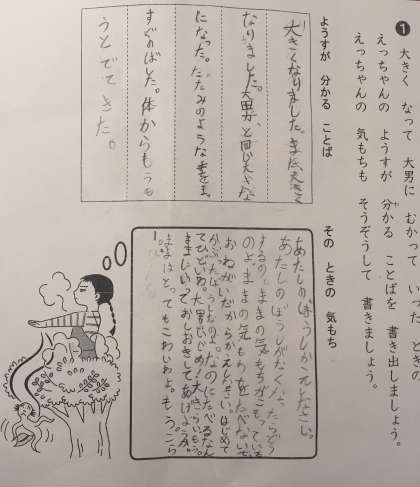 ❶ 大きく なって 大男に むかって いった ときの
えっちゃんの ようすが 分かる ことばを 書き出しましょう。
えっちゃんの 気もちも そうぞうして 書きましょう。
ようすが 分かる ことば
大きくなりました。まだ、大きく
なりました。大男と同じ大きな
になった。たたみのような手を、ま
すぐのばした。体からもうも
うとでてきた。
その ときの 気もち
あたしのぼうしかえしなさい。
あたしのぼうしがなくなったらどう
するの。ままの気もちがこもっている
のよ。ままの気もちを食べないで
おねがいだからかえしなさい。はじめて
かぶったぼうしなのよ。なのにたべるなん
てひどいわ。大男
ままはとってもこわいわよ。もう、こら